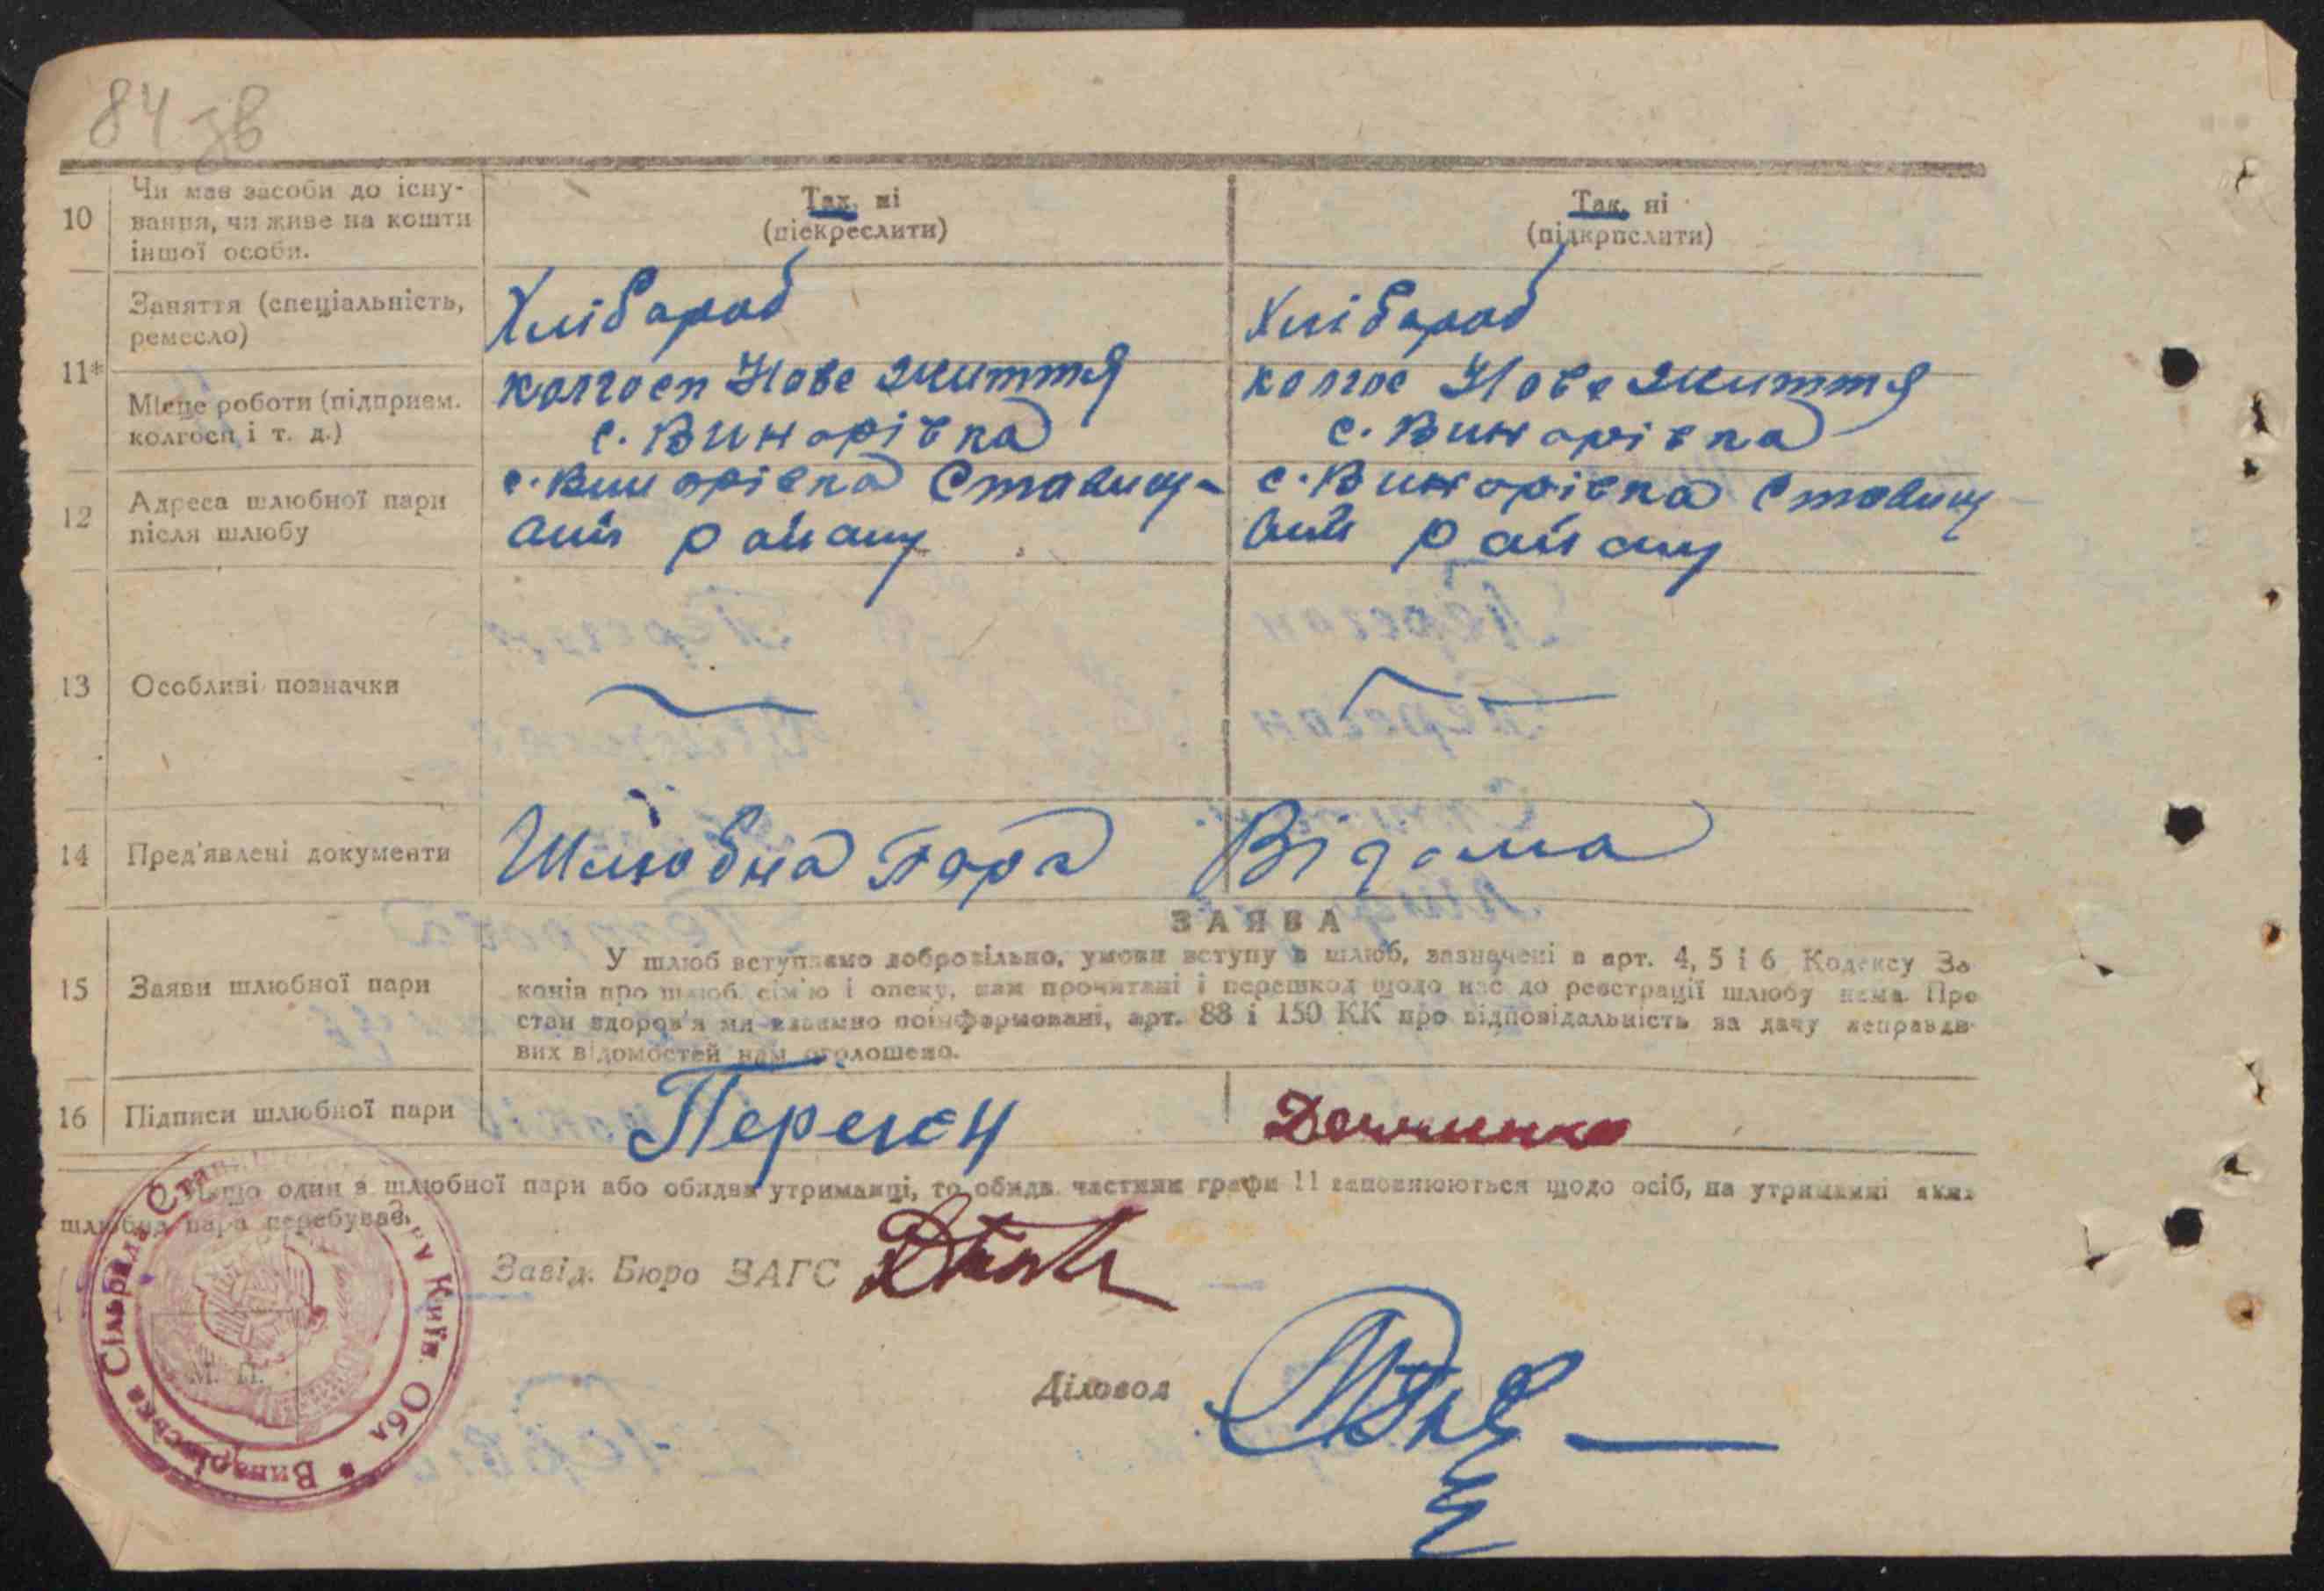 84 зв
10
Чи має засоби до існу-
вання, чи живе на кошти
іншої особи.
Так, ні
(підкреслити)
Так, ні
(підкрислити)
11*
Заняття (спеціальність,
ремесло)
Хлібароб
Хлібароб
Місце роботи (підприєм.
колгосп і т. д.)
колгосп Нове життя
с. Винарівка
колгос Нове життя
с. Винарівка
12
Адреса шлюбної пари
після шлюбу
с. Винарівка Ставищ-
району
с. Винарівка Ставищ
району
13
Особливі позначки
14
Пред'явлені документи
Шлюбна пара Відома
15
Заяви шлюбної пари
ЗАЯВА
У шлюб вступаємо добровільно, умови вступу в шлюб, зазначені в арт. 4, 5 і 6 Кодексу За
конів про шлюб, сім'ю і опеку, нам прочитані і перешкод щодо нас до реєстрації шлюбу нема. Про
стан здоров'я ми взаємно поінформовані, арт. 88 і 150 КК про відповідальність за дачу неправди-
вих відомостей нам оголошено.
16
Підписи шлюбної пари
Переген
Якщо один з шлюбної пари або обидва утриманці, то обидв. частини графи 11 заповнюються щодо осіб, на утриманні яких
шлюбна пара перебуває.
Завід. Бюро ЗАГС
М. П.
Діловод
Винарівська Сільрада Київ. Обл